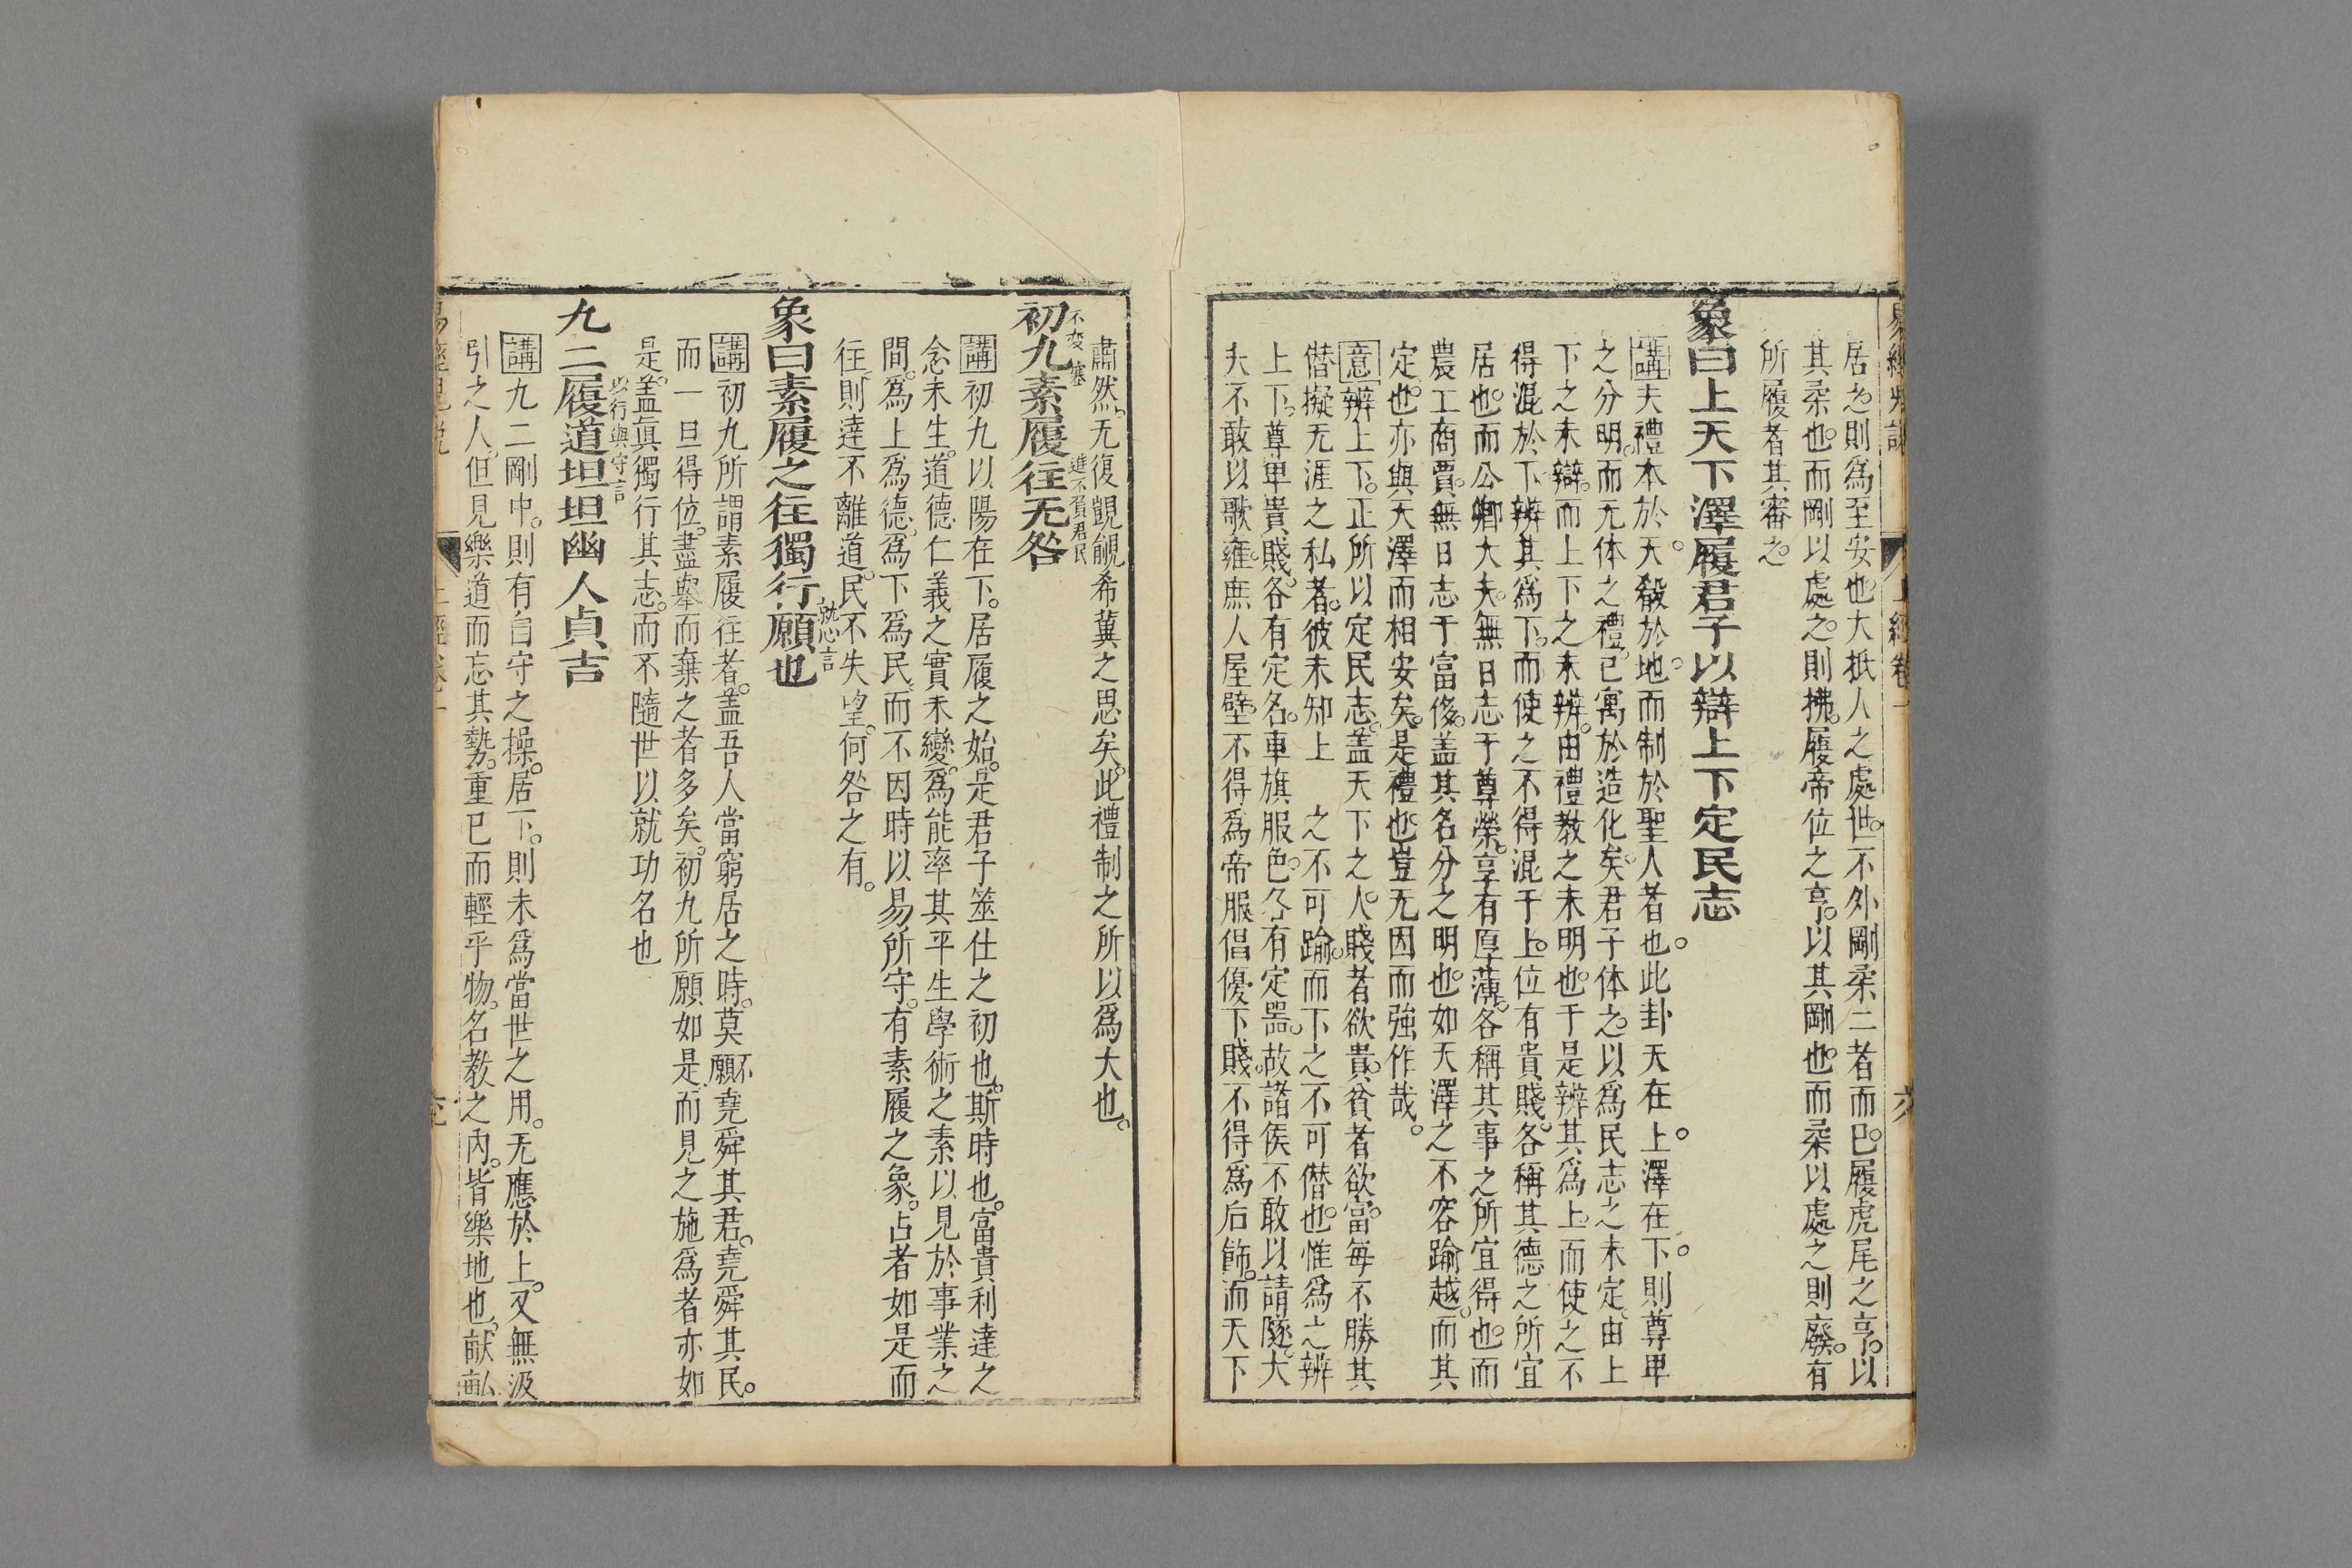 居之則爲至安也大抵人之處世不外剛柔二者而已履虎尾之亨以
其柔也而剛以處之則拂履帝位之亨以其剛也而柔以處之則廢有
所履者其審之
象曰上天下澤履君子以辯上下定民志
講夫禮本於天殽於地而制於聖人者也此卦天在上澤在下則尊卑
之分明而无体之禮已寓於造化矣君子体之以爲民志之未定由上
下之未辯而上下之未辨由禮教之未明也于是辨其爲上而使之不
得混於下辨其爲下而使之不得混于上位有貴賤各稱其德之所宜
居也而公卿大夫無日志于尊榮享有厚薄各稱其事之所宜得也而
農工商賈無日志于富侈盖其名分之明也如天澤之不容踰越而其
定也亦與天澤而相安矣是禮也豈无因而強作哉
意辨上下正所以定民志盖天下之人賤者欲貴貧者欲富每不勝其
僣擬无涯之私者彼未知上 之不可踰而下之不可僣也惟爲之辨
上下尊卑貴賤各有定名車旗服色各有定噐故諸侯不敢以請隧大
夫不敢以歌雍庶人屋壁不得爲帝服倡優下賤不得爲后飾而天下
肅然无復覬覦希冀之思矣此禮制之所以爲大也
不変塞
進不負君民
初九素履往无咎
講初九以陽在下居履之始是君子筮仕之初也斯時也富貴利達之
念未生道德仁義之實未變爲能率其平生學術之素以見於事業之
間爲上爲德爲下爲民而不因時以易所守有素履之象占者如是而
往則達不離道民不失望何咎之有
就心言
象曰素履之往獨行願也
講初九所謂素履往者盖吾人當窮居之時莫不願堯舜其君堯舜其民
而一旦得位盡舉而棄之者多矣初九所願如是而見之施爲者亦如
是盖眞獨行其志而不隨世以就功名也
以行與守言
九二履道坦坦幽人貞吉
講九二剛中則有自守之操居下則未爲當世之用无應於上又無汲
引之人但見樂道而忘其勢重已而輕乎物名教之內皆樂地也畎畝